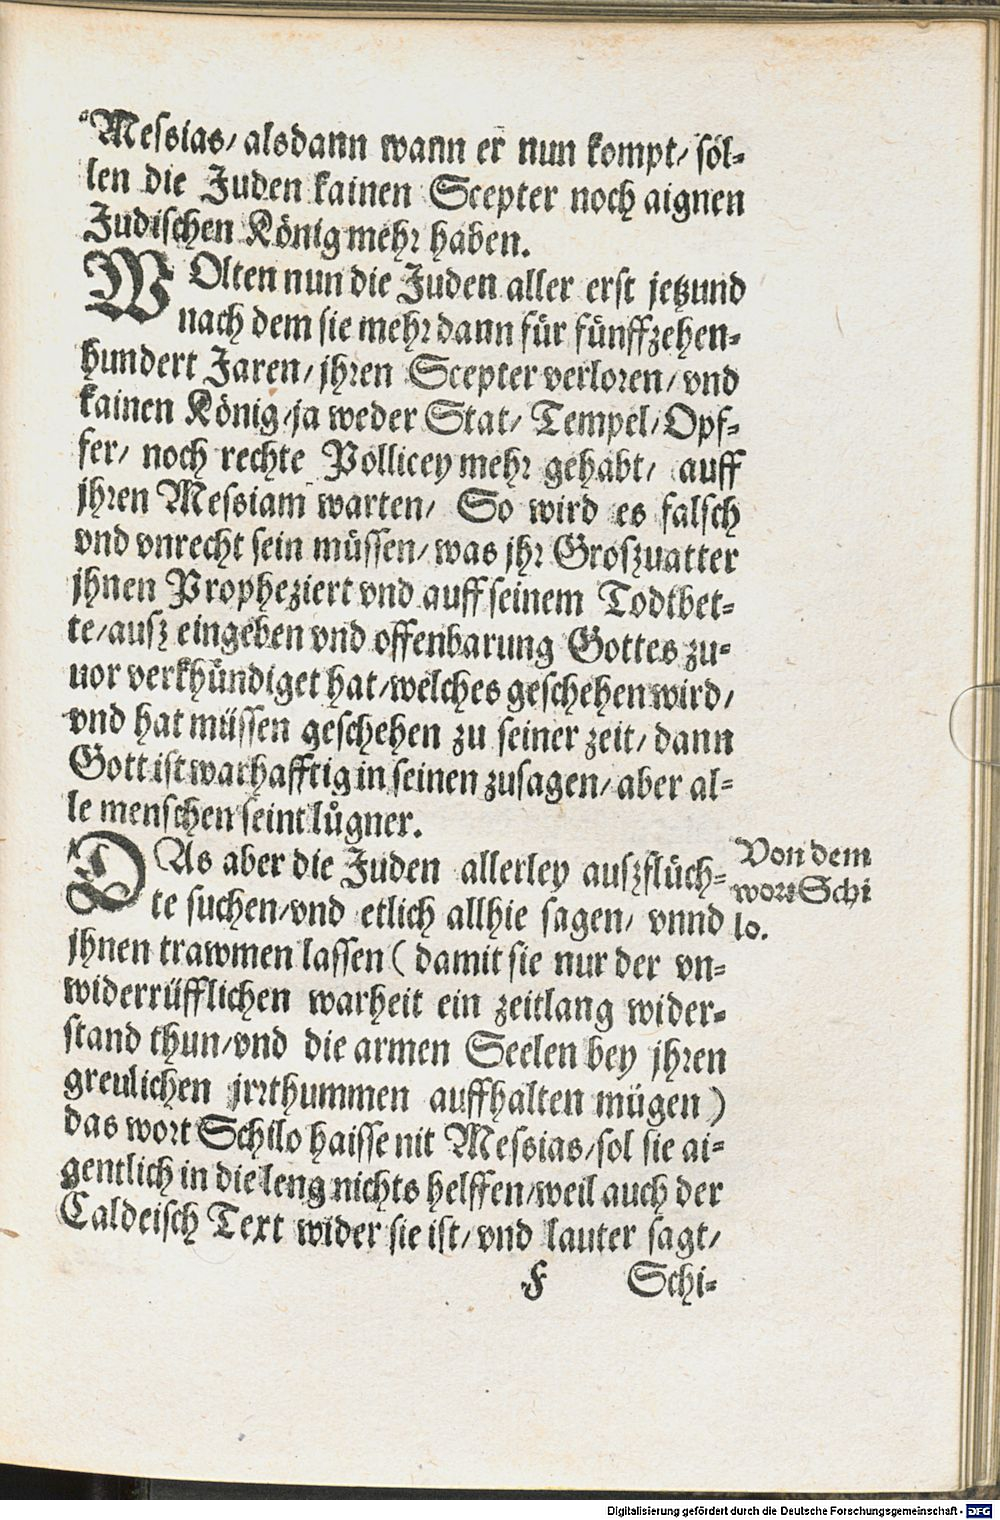 Messias/ alsdann wann er nun kompt/ söl-
len die Juden kainen Scepter noch aignen
Judischen König mehr haben.
WOlten nun die Juden aller erst jetzund
nach dem sie mehr dann für fünffzehen-
hundert Jaren/ jhren Scepter verloren/ vnd
kainen König/ ja weder Stat/ Tempel/ Opf-
fer/ noch rechte Pollicey mehr gehabt/ auff
jhren Messiam warten/ So wird es falsch
vnd vnrecht sein müssen/ was jhr Groszuatter
jhnen Propheziert vnd auff seinem Todtbet-
te/ ausz eingeben vnd offenbarung Gottes zu-
uor verkhündiget hat/ welches geschehen wird/
vnd hat müssen geschehen zu seiner zeit/ dann
Gott ist warhafftig in seinen zusagen/ aber al-
le menschen seint lůgner.
DAs aber die Juden allerley auszflüch-
te suchen/ vnd etlich allhie sagen/ vnnd
jhnen trawmen lassen ( damit sie nur der vn-
widerrüfflichen warheit ein zeitlang wider-
stand thun/ vnd die armen Seelen bey jhren
greulichen jrrthummen auffhalten mügen )
das wort Schilo haisse nit Messias/ sol sie ai-
gentlich in die leng nichts helffen/ weil auch der
Caldeisch Text wider sie ist/ vnd lauter sagt/
F Schi-
Von dem
wort Schi
lo.
Digitalisierung gefördert durch die Deutsche Forschungsgemeinschaft - DFG